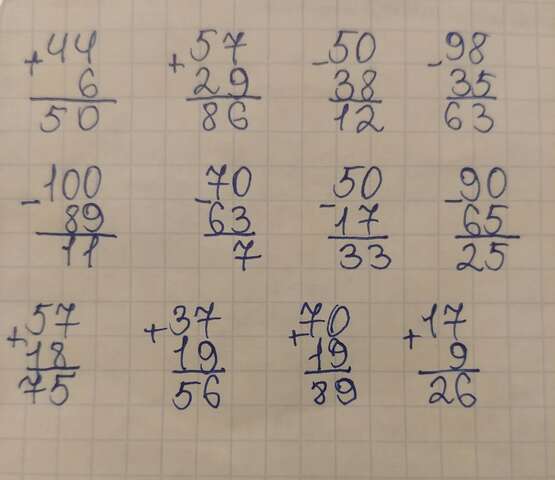 +44 +57 -50 -98
6 29 38 35
50 86 12 63
-100 -70 -50 -90
89 63 17 65
11 7 33 25
+57 +37 +70 +17
18 19 19 9
75 56 89 26